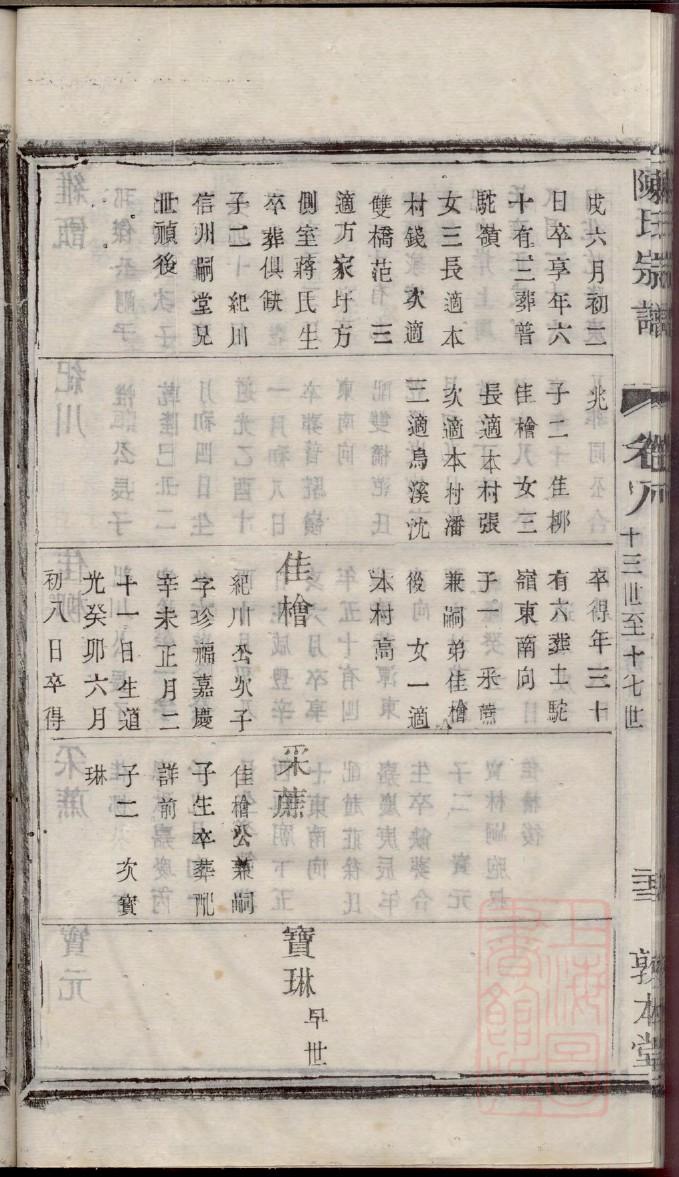 陳氏宗譜
卷八
十三世至十七世
敦本堂
戌六月初二
日卒享年六
十有三葬普
駝嶺
女三長適本
村錢次適
雙橋范三
適方家圩方
側室蔣氏生
卒葬俱缺
子二紀川
信州嗣堂兄
世禎後
兆
子二佳柳
佳檜女三
長適本村張
次適本村潘
三適烏溪沈
卒得年三十
有六葬土駝
嶺東南向
子一采蕉
兼嗣弟佳檜
後女一適
本村高
佳檜
紀川公次子
字珍福嘉慶
辛未正月二
十一日生道
光癸卯六月
初八日卒得
采蕉
佳檜公兼嗣
子生卒葬配
詳前
子二次寶
琳
寶琳早世
上海圖書館藏